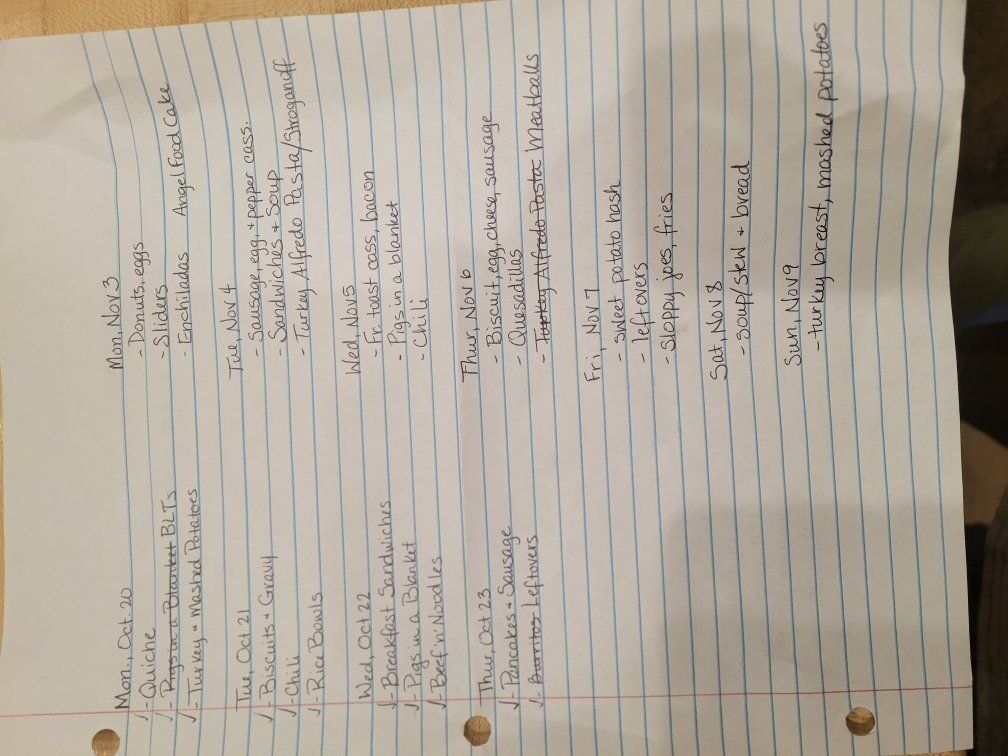 Mon., Oct. 20
✓-Quiche
✓-Pigs in a Blanket BLTs
✓-Turkey + Mashed Potatoes
Tue, Oct 21
✓-Biscuits + Gravy
✓-Chili
✓-Rice Bowls
Wed, Oct 22
✓-Breakfast Sandwiches
✓-Pigs in a Blanket
✓-Beef 'n' Noodles
Thur, Oct 23
✓-Pancakes + Sausage
✓-Burritos Leftovers
Mon, Nov 3
-Donuts, eggs
-Sliders
-Enchiladas Angel Food Cake
Tue, Nov 4
-Sausage, egg, + pepper cass.
-Sandwiches + Soup
-Turkey Alfredo Pasta/Stroganoff
Wed, Nov 5
-Fr. toast cass, bacon
-Pigs in a blanket
-Chili
Thur, Nov 6
-Biscuit, egg, cheese, sausage
-Quesadillas
-Turkey Alfredo Pasta Meatballs
Fri, Nov 7
-sweet potato hash
-leftovers
-sloppy joes, fries
Sat, Nov 8
-soup/stew + bread
Sun, Nov 9
-turkey breast, mashed potatoes